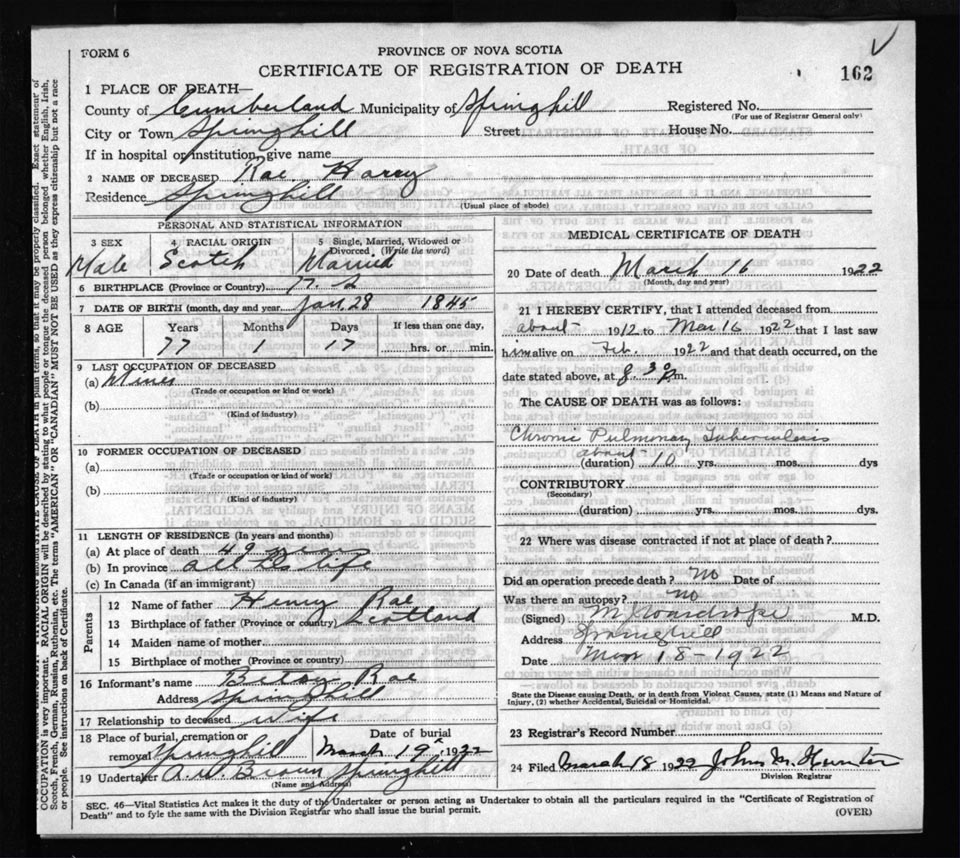 FORM 6
PROVINCE OF NOVA SCOTIA
CERTIFICATE OF REGISTRATION OF DEATH
162
1 PLACE OF DEATH—
County of Cumberland Municipality of Springhill Registered No.
(For use of Registrar General only)
City or Town Springhill Street House No.
If in hospital or institution, give name
2 NAME OF DECEASED Rae Harry
Residence Springhill
(Usual place of abode)
PERSONAL AND STATISTICAL INFORMATION
3 SEX 4 RACIAL ORIGIN 5 Single, Married, Widowed or Divorced (Write the word)
Male Scotch Married
6 BIRTHPLACE (Province or Country) N. S
7 DATE OF BIRTH (month, day and year) Jan. 28 1845
8 AGE Years Months Days If less than one day,
77 1 17 hrs. or min.
9 LAST OCCUPATION OF DECEASED
(a) Miner
(Trade or occupation or kind or work)
(b)
(Kind of industry)
10 FORMER OCCUPATION OF DECEASED
(a)
(Trade or occupation or kind of work)
(b)
(Kind of industry)
11 LENGTH OF RESIDENCE (In years and months)
(a) At place of death 49
(b) In province all his life
(c) In Canada (if an immigrant)
Parents
12 Name of father Henry Rae
13 Birthplace of father (Province or country) Scotland
14 Maiden name of mother
15 Birthplace of mother (Province or country)
16 Informant's name Betsy Rae
Address Springhill
17 Relationship to deceased wife
18 Place of burial, cremation or removal Springhill Date of burial March 19 1922
19 Undertaker A. W. Brown Springhill
(Name and Address)
MEDICAL CERTIFICATE OF DEATH
20 Date of death March 16 1922
(Month, day and year)
21 I HEREBY CERTIFY, that I attended deceased from
about 1912 to Mar 16 1922 that I last saw
him alive on Feb. 1922 and that death occurred, on the
date stated above, at 8.30 p.m.
The CAUSE OF DEATH was as follows:
Chronic Pulmonary Tuberculosis
about
(duration) 10 yrs. mos. dys
CONTRIBUTORY
(Secondary)
(duration) yrs. mos. dys.
22 Where was disease contracted if not at place of death?
Did an operation precede death? no Date of
Was there an autopsy? no
(Signed) M. D.
Address Springhill
Date Mar 18 - 1922
State the Disease causing Death, or in death from Violent Causes, state (1) Means and Nature of
Injury, (2) whether Accidental, Suicidal or Homicidal.
23 Registrar's Record Number
24 Filed March 18 1922 John M. Hunter
Division Registrar
SEC. 46—Vital Statistics Act makes it the duty of the Undertaker or person acting as Undertaker to obtain all the particulars required in the "Certificate of Registration of
Death" and to fyle the same with the Division Registrar who shall issue the burial permit.
(OVER)
OCCUPATION is very important. RACIAL ORIGIN will be described by stating to what people or tongue the deceased person belonged whether English, Irish,
Scotch, French, German, Russian, Ruthenian, etc. The terms "AMERICAN" OR "CANADIAN" MUST NOT BE USED as they express citizenship but not a race
or people. See instructions on back of Certificate.